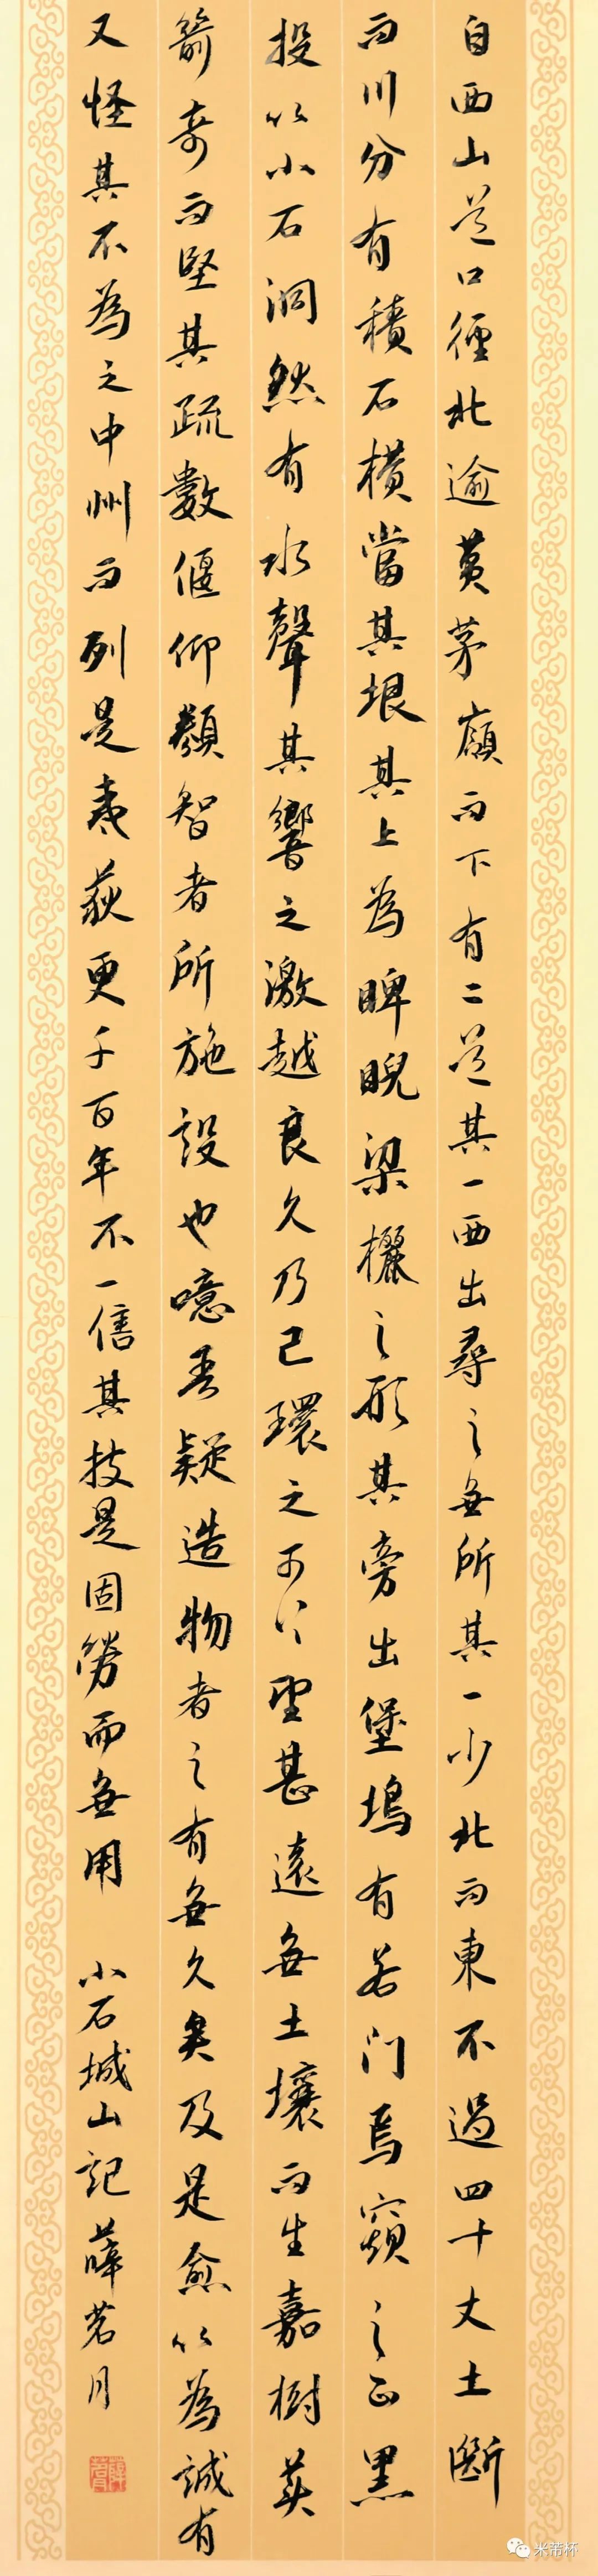 自西山道口徑北逾黃茅嶺而下有二道其一西出尋之無所其一少北而東不過四十丈土斷
而川分有積石橫當其垠其上為睥睨梁欐之形其旁出堡塢有若門焉窺之正黑
投以小石洞然有水聲其響之激越良久乃已環之可上望甚遠無土壤而生嘉樹美
箭奇而堅其疏數偃仰類智者所施設也噫吾疑造物者之有無久矣及是愈以為誠有
又怪其不為之中州而列是夷狄更千百年不一售其技是固勞而無用 小石城山記 薛茗月
米芾杯